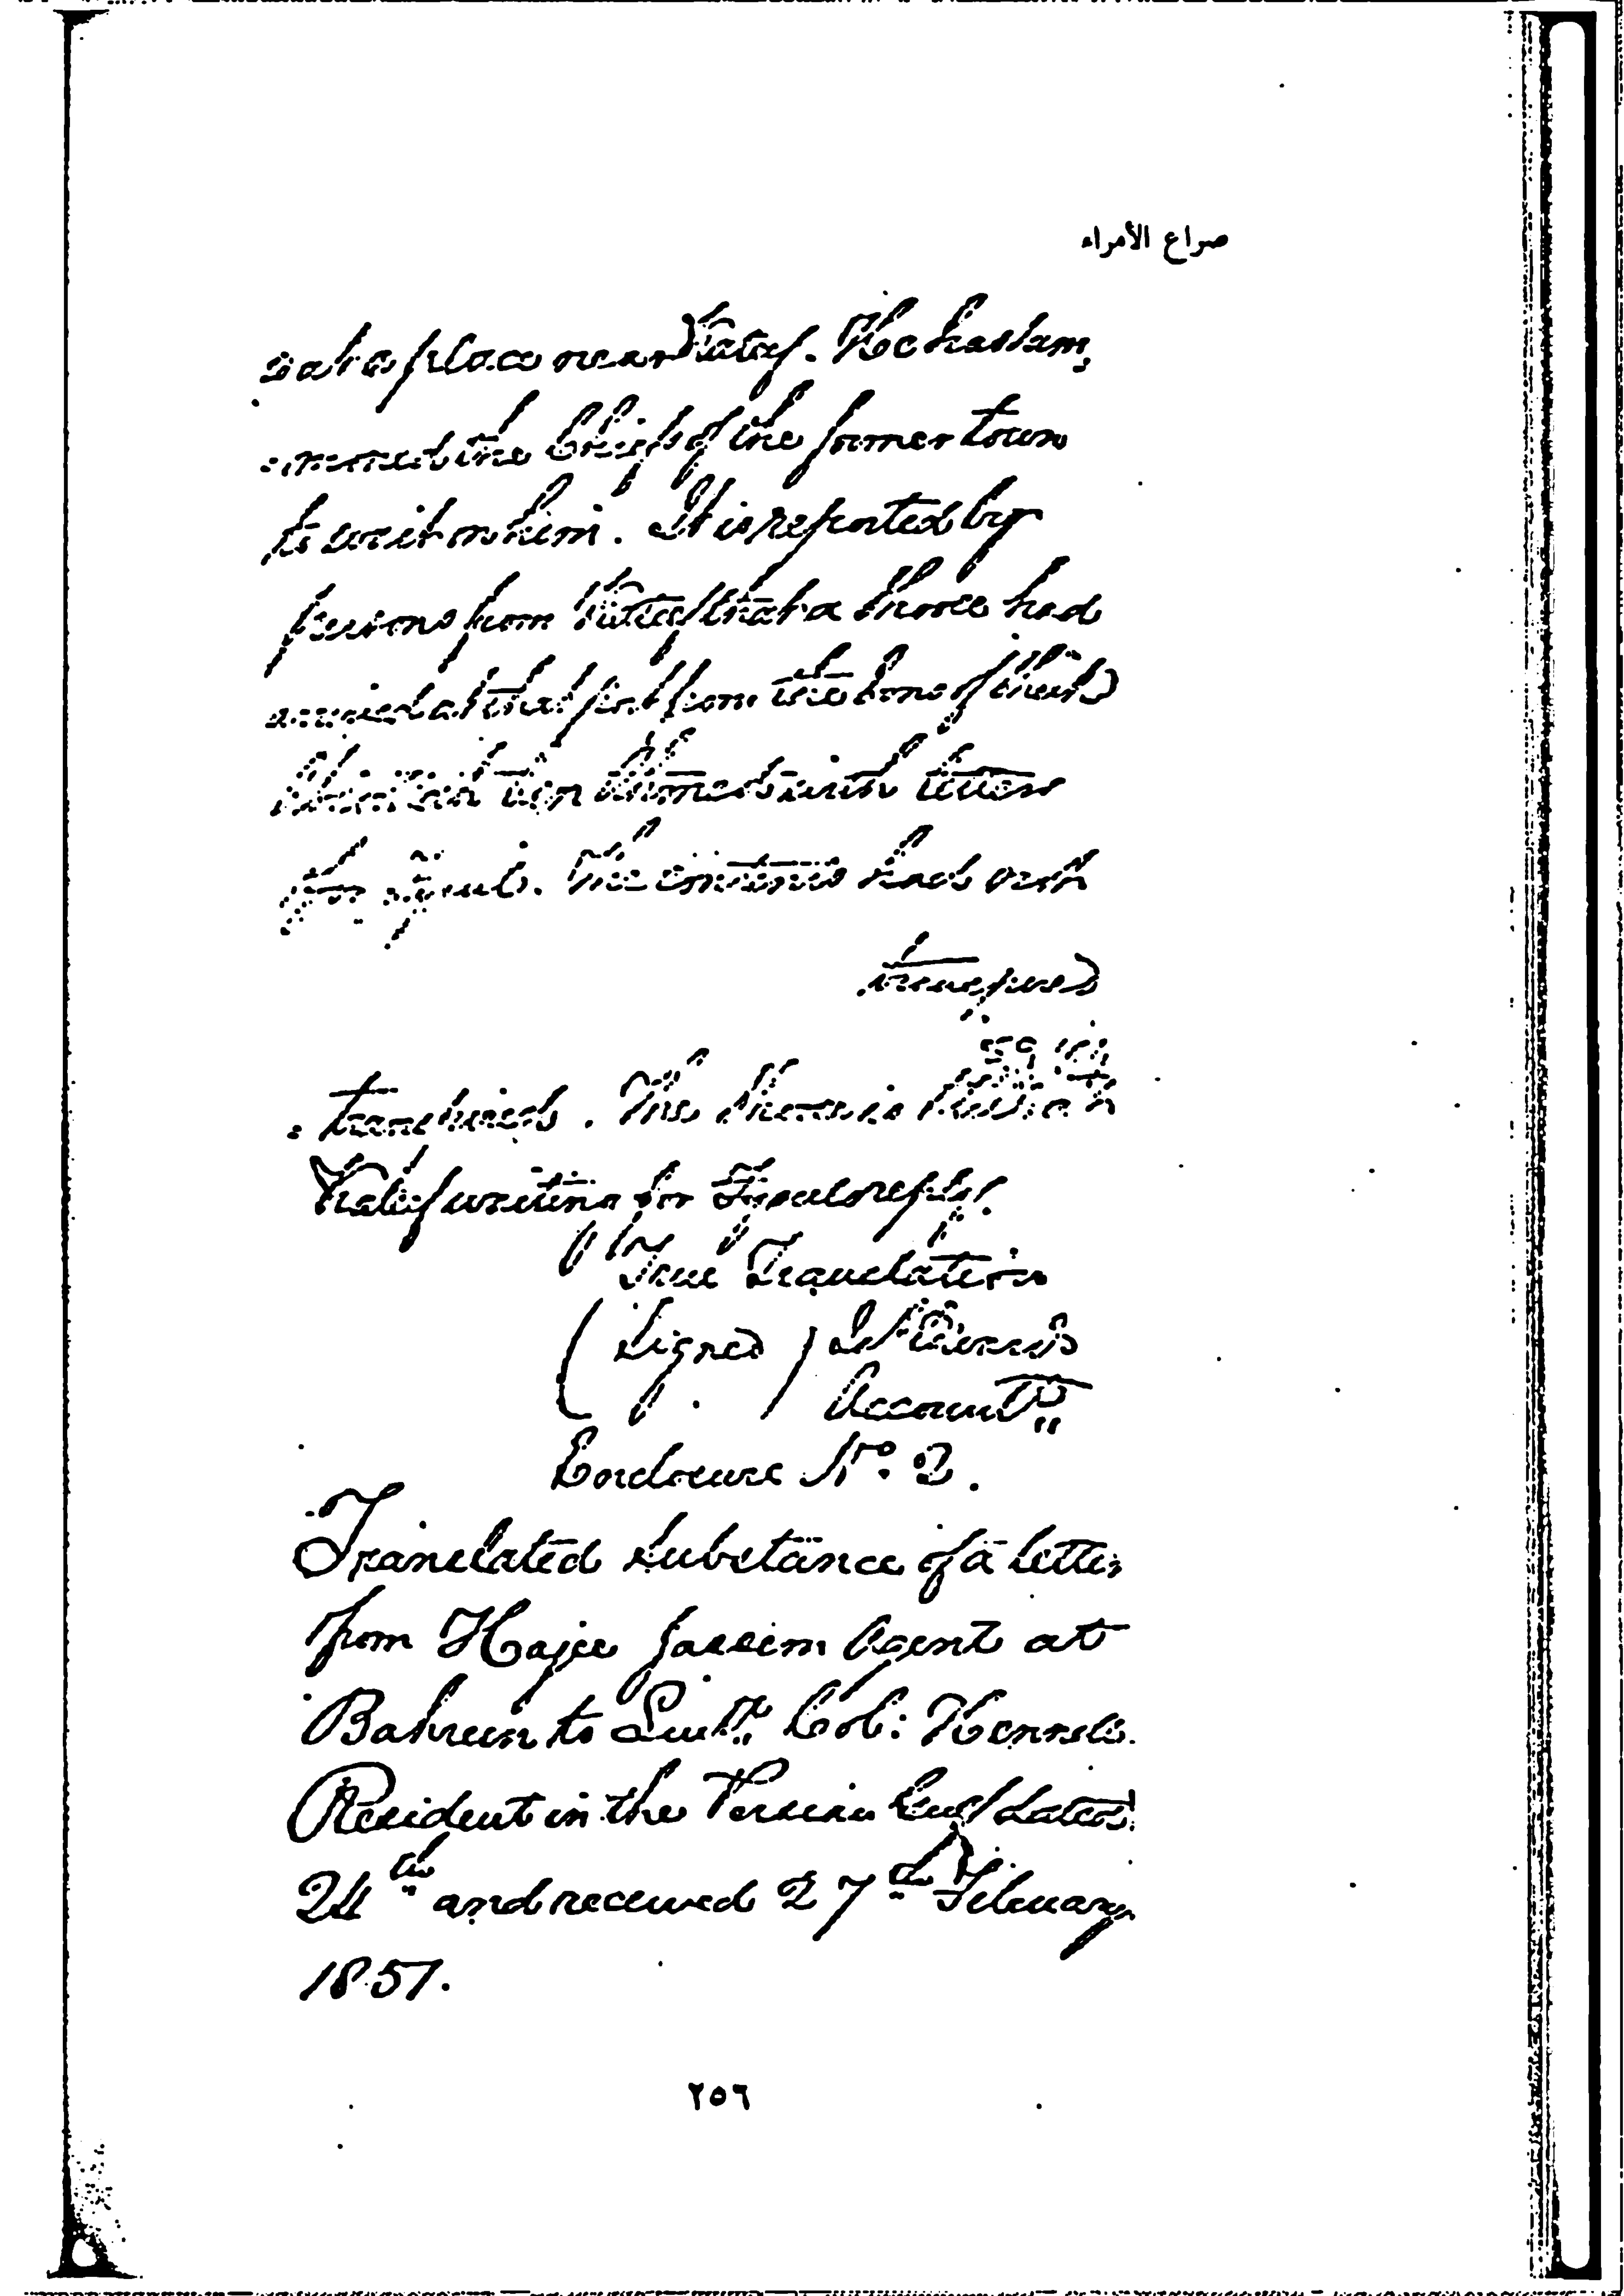 صراع الأمراء
is at a place near Kateef. He has sum
=moned the Chief of the former town
to wait on him. It is reported by
persons from Kateef that a Moola had
arrived at that port from the Sons of
with letters
for. The contents had not
transpired
transpired. The Moola is
Kateef waiting for Fysul's reply.
True Translation
(Signed)
Account.t
Enclosure No. 2.
Translated Substance of a letter
from Hajee Jassem Agent at
Bahrein to Lieut. Col: Hennell
Resident in the Persian Gulf dated
24th and received 27th February
1851.
٢٥٦